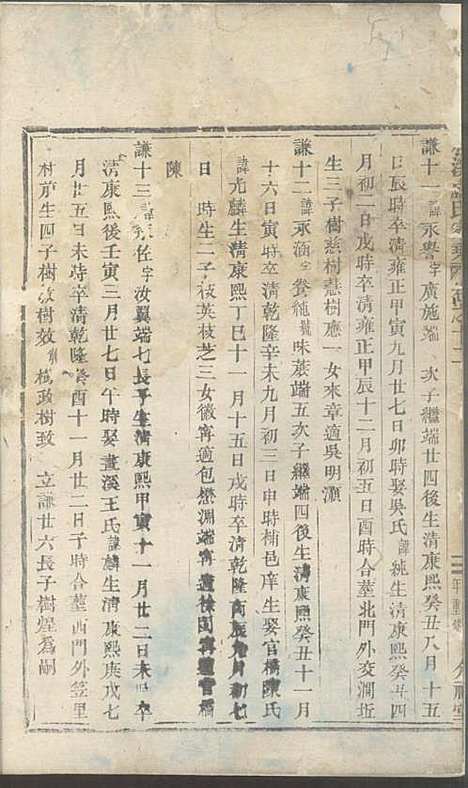 謙十一 諱永譽字廣施端 次子繼端廿四後生清康熙癸丑八月十五
日辰時卒清雍正甲寅九月廿七日卯時娶吳氏諱純生清康熙癸丑四
月初二日戌時卒清雍正甲辰十二月初五日酉時合塟北門外交澗近
生三子樹慈樹慧樹應一女來章適吳明灝
謙十二諱永涵字養純號味蔗端五次子繼端四後生清康熙癸丑十一月
十六日寅時卒清乾隆辛未九月初三日申時楠邑庠生娶官橋陳氏
諱光麟生清康熙丁巳十一月十五日戌時卒清乾隆丙辰 月初七
日 時生二子枝英枝芝三女徽寗適包懋淵端寗適徐 寗適官橋
陳
謙十三諱 佐字汝翼端七長子生清康熙甲寅十一月廿二日未 卒
清康熙後壬寅三月廿七日午時娶畫溪王氏諱麟生清康熙庚戌七
月廿五日未時卒清乾隆癸酉十一月廿二日子時合塟西門外笠里
村前生四子樹 樹效 樹政樹致 立謙廿六長子樹煋為嗣